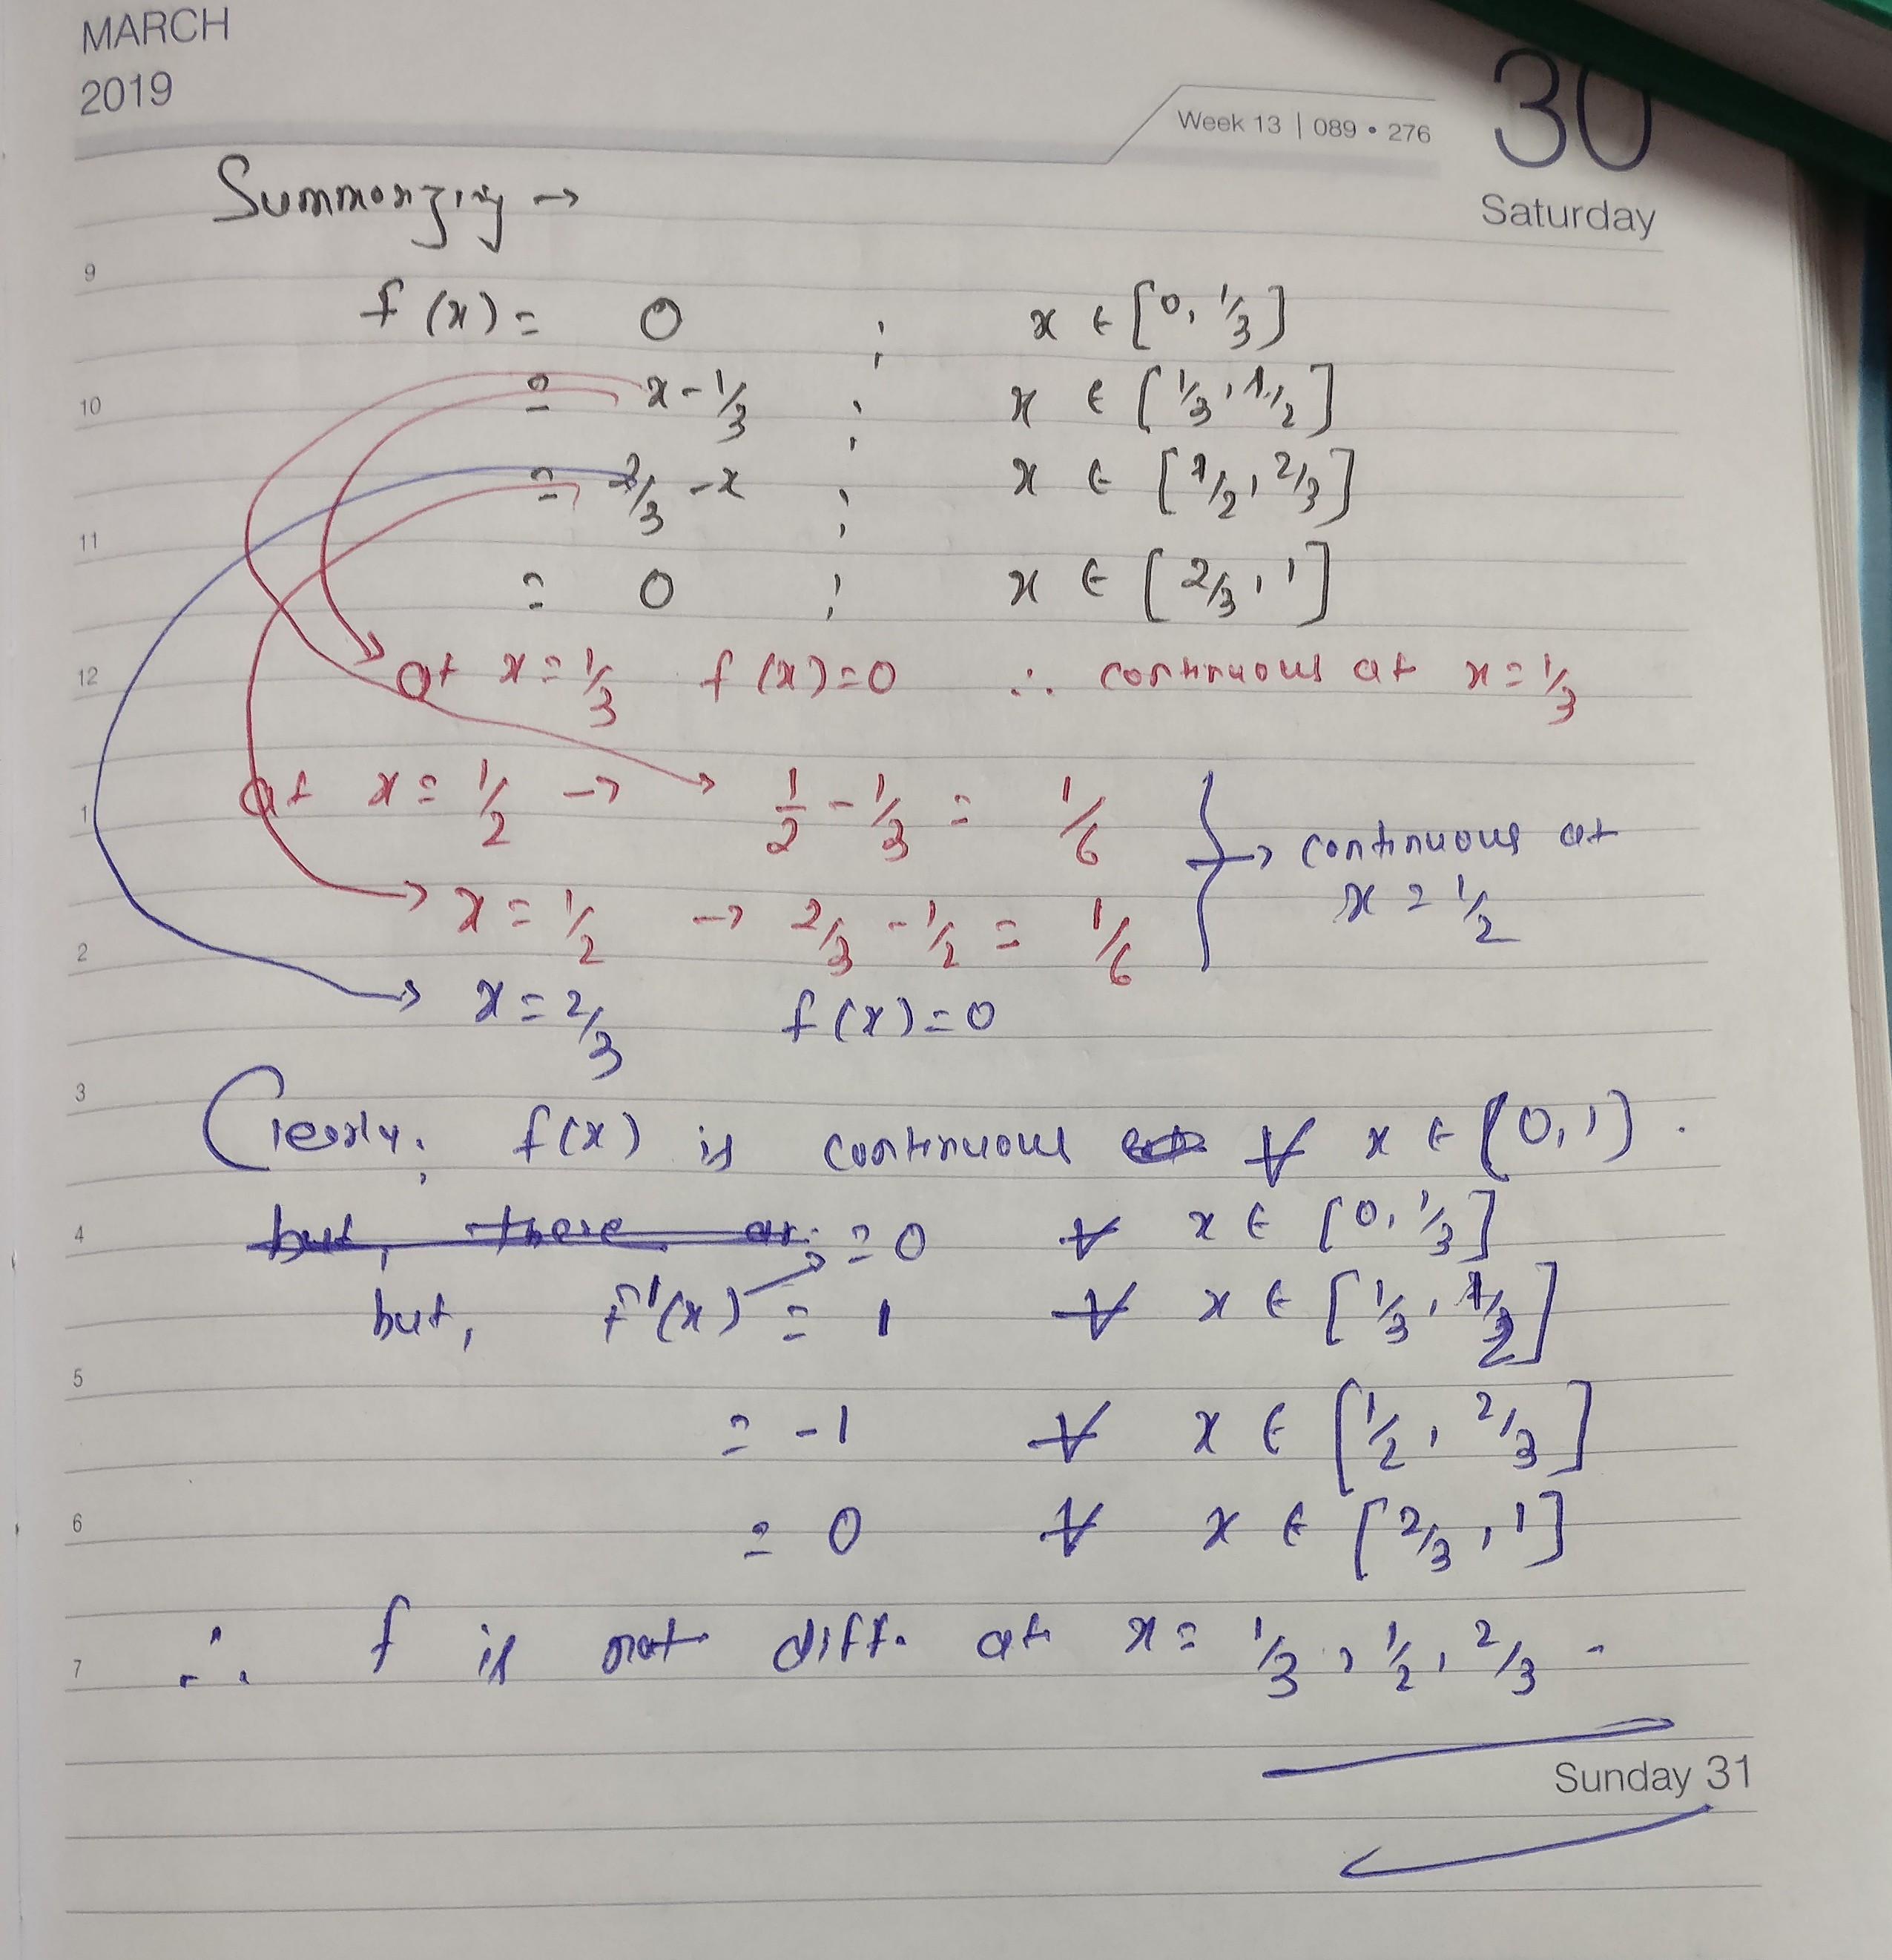 MARCH
2019
Week 13 | 089 • 276
30
Saturday
Summarizing →
9
f(x) = 0 ; x ∈ [0, 1/3]
10
= x - 1/3 ; x ∈ [1/3, 1/2]
= 2/3 - x ; x ∈ [1/2, 2/3]
11
= 0 ; x ∈ [2/3, 1]
12
at x = 1/3 f(x) = 0 ∴ continuous at x = 1/3
1
at x = 1/2 → 1/2 - 1/3 = 1/6
→ continuous at
x = 1/2
x = 1/2 → 2/3 - 1/2 = 1/6
2
→ x = 2/3 f(x) = 0
3
Clearly, f(x) is continuous ∀ x ∈ [0, 1].
4
but, there ar = 0 ∀ x ∈ [0, 1/3]
but, f'(x) = 1 ∀ x ∈ [1/3, 1/2]
5
= -1 ∀ x ∈ [1/2, 2/3]
6
= 0 ∀ x ∈ [2/3, 1]
7
∴ f is not diff. at x = 1/3, 1/2, 2/3.
Sunday 31